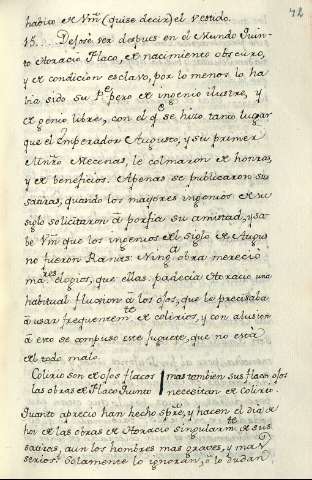 72
habito de Vm̃ (quise decir) el vestido.
15.... Dejose ver despues en el Mundo Quin-
to Horacio Flaco, de nacimiento obscuro,
y de condicion esclavo, por lo menos lo ha
bia sido su Pe. pero de ingenio ilustre, y
de genio libre, con el qe se hizo tanto lugar
que el Emperador Augusto, y su primer
Minro Mecenas, le colmaron de honras,
y de beneficios. Apenas se publicaron sus
satiras, quando los mayores ingenios de su
siglo solicitaron à porfia su amistad, y sa-
be Vm̃ que los ingenios del siglo de Augus
no fueron Ranas. Ninga obra merecio
mares elogios, que ellas. padecia Horacio una
habitual fluxion à los ojos, que le precisaba
à usar frequentemte de colirios, y con alusion
à esto se compuso este juguete, que no està
del todo malo.
Colirio son de ojos flacos | mas tambien sus flacos ojos
las obras de Flaco Quinto | necesitan de Colirio.
Quanto aprecio han hecho spre, y hacen el dia de
hoy de las obras de Horacio singularmte de sus
satiras, aun los hombres mas graves, y mas
serios. Solamente lo ignoran, ò lo dudan